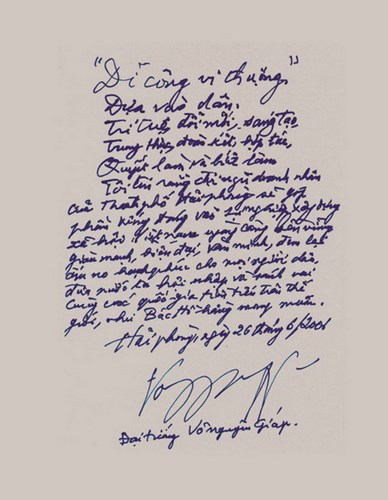 "Dĩ công vi thượng"
Dựa vào dân.
Trí tuệ, đổi mới, sáng tạo
Trung thực, đoàn kết, hợp tác,
Quyết làm và biết làm
Tôi tin rằng đội ngũ doanh nhân
của Thành phố Hải phòng sẽ góp
phần xứng đáng vào sự nghiệp xây dựng
xã hội Việt nam ngày càng bền vững
giàu mạnh, hiện đại, văn minh, đem lại
ấm no hạnh phúc cho mọi người dân,
đưa nước ta hội nhập và sánh vai
cùng các quốc gia tiên tiến trên thế
giới, như Bác Hồ hằng mong muốn.
Hải phòng, ngày 26 tháng 6/2006
Đại tướng Võ nguyên Giáp.